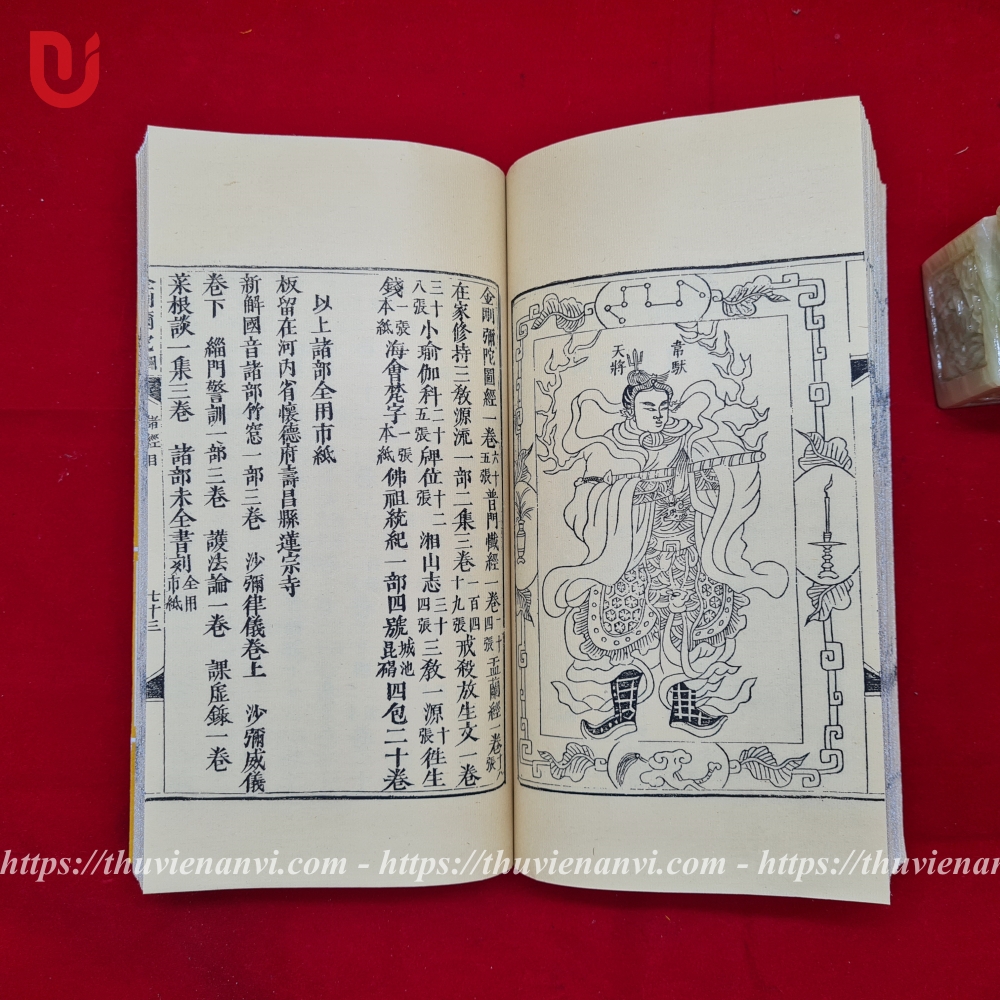 韋馱
天將
金剛彌陀圖經一卷六十五張普門懺經一卷一十四張盂蘭經一卷十八張
在家修持三教源流一部二集三卷一百四十九張戒殺放生文一卷
三十八張小瑜伽科二十五張牌位十二張湘山志三十四張三教一源十張徃生
錢一張本紙海會梵字一張本紙佛祖統紀一部四號城池崑四包二十卷
以上諸部全用市紙
板留在河内省懷德府壽昌縣蓮宗寺
新觧國音諸部竹窓一部三卷 沙彌律儀卷上 沙彌威儀
卷下 緇門警訓一部三卷 護法論一卷 課虛錄一卷
菜根談一集三卷 諸部未全書刻全用市紙
諸經目 七十三
https://thuvienanvi.com - https://thuvienanvi.com - https://thuvienanv